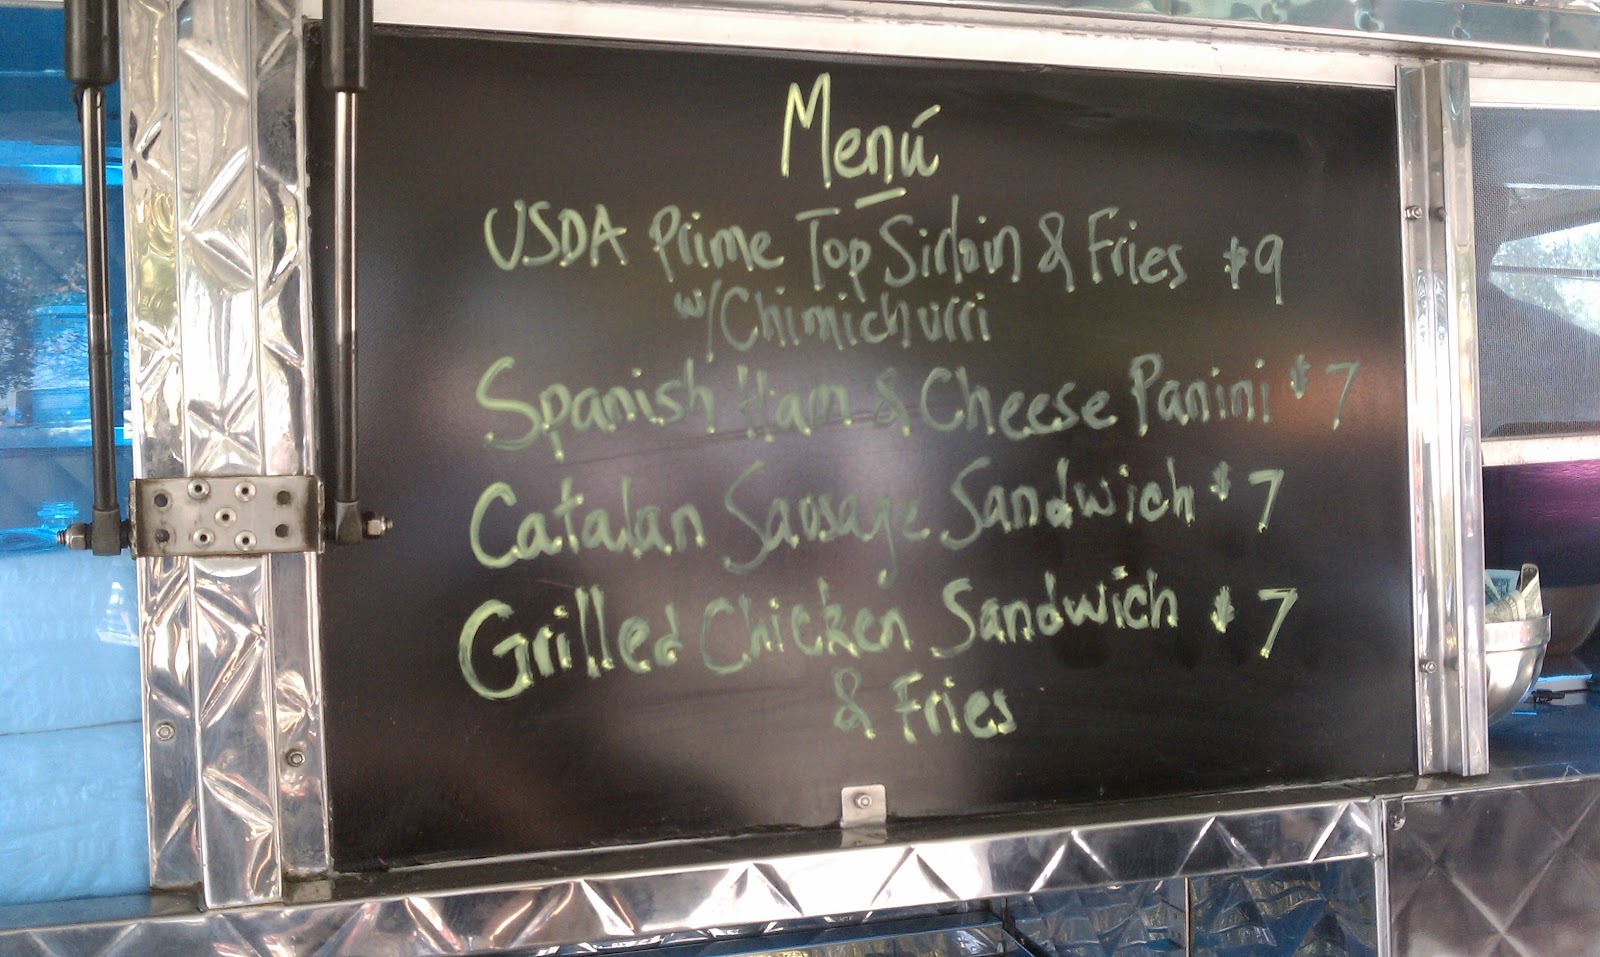 Menú
USDA Prime Top Sirloin & Fries $9
w/Chimichurri
Spanish Ham & Cheese Panini $7
Catalan Sausage Sandwich $7
Grilled Chicken Sandwich $7
& Fries